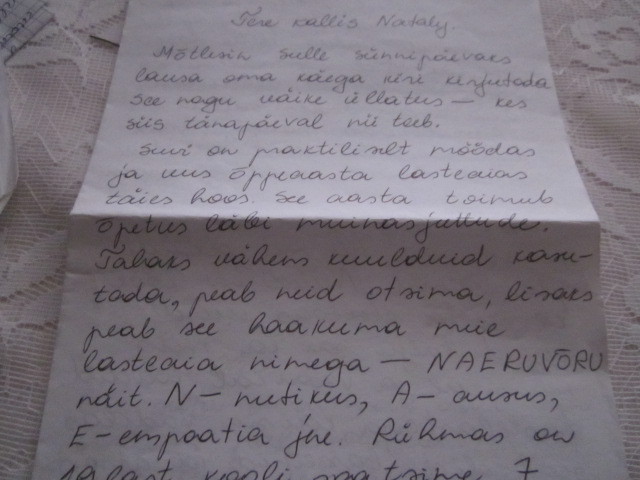 Tere kallis Nataly.
Mõtlesin Sulle sünnipäevaks
lausa oma käega kiri kirjutada
see nagu väike üllatus – kes
siis tänapäeval nii teeb.
Suvi on praktiliselt möödas
ja uus õppeaasta lasteaias
täies hoos. See aasta toimub
õpetus läbi muinasjuttude.
Tahaks vähem kuulduid kasu-
tada, peab neid otsima, lisaks
peab see haakuma meie
lasteaia nimega – NAERUVÕRU
näit. N – nutikus, A – ausus,
E – empaatia jne. Rühmas on
19 last, kooli saatsime 7